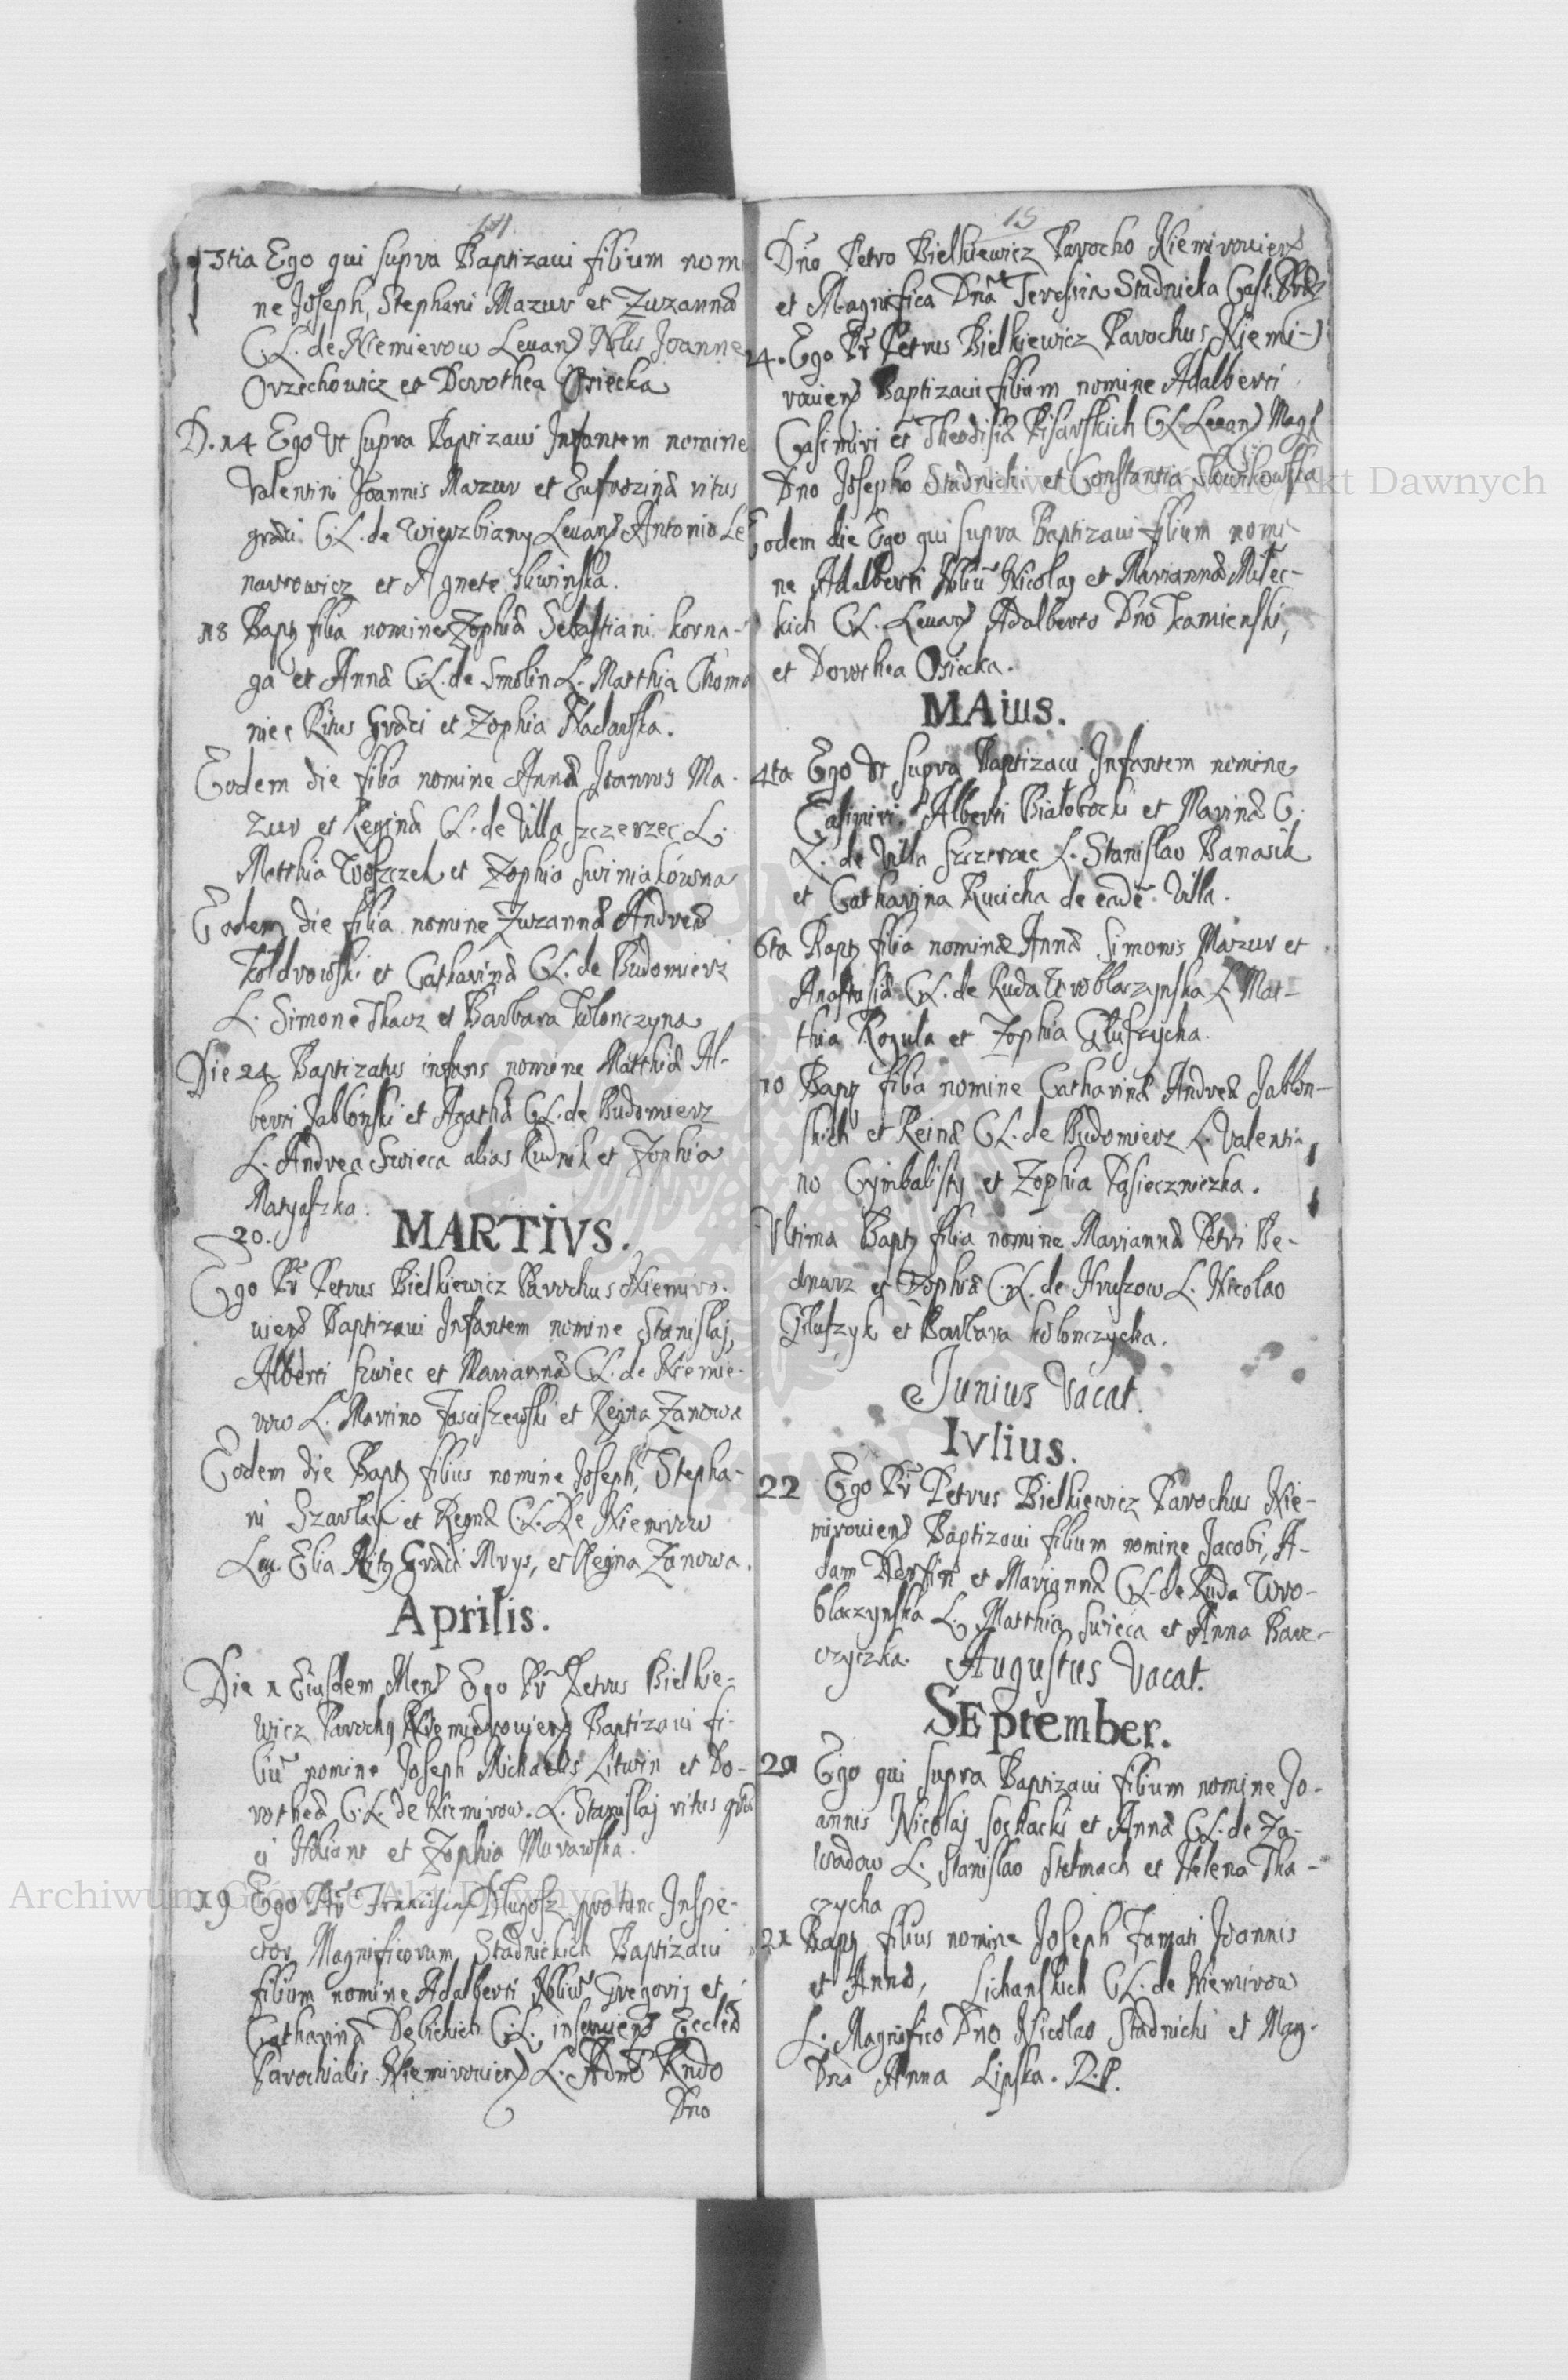 14
13tia Ego qui supra Baptizaui filium nomi
ne Joseph, Stephani Mazur et Zuzannæ
C.L. de Niemierow Leuan) Nblis Joanne
Orzechowicz et Dorothea Osiecka
D. 14 Ego Vt supra Baptizaui Infantem nomine
Valentini Joannis Mazur et Eufrozinæ ritus
græci C.L. de Wierzbiany Leuan) Antonio Le
nartowicz et Agnete
18 Bapt) filia nomine Zophiæ Sebastiani korna-
ga et Annæ C.L. de Smolin L. Matthia Choma
niec Ritus Græci et Zophia
Eodem die filia nomine Annæ Joannis Ma-
zur et Reginæ C.L. de Villa Szczerzec L.
Matthia Woszczek et Zophia Swiniakówna
Eodem die filia nomine Zuzannæ Andreæ
Koldrowski et Catharinæ C.L. de Budomierz
L. Simone Tkacz et Barbara Kolonczyna
Die 24 Baptizatus infans nomine Matthiæ Al-
berti Jabłonski et Agathæ C.L. de Budomierz
L. Andrea Swieca alias Rudnik et Zophia
Matyaszka.
MARTIVS.
20.
Ego Pr Petrus Bielkiewicz Parochus Niemiro-
uien) Baptizaui Infantem nomine Stanislaj,
Alberti Szwiec et Mariannæ C.L. de Niemie-
row L. Martino Jasciszewski et Regina Zanowa
Eodem die Bapt) filius nomine Joseph, Stepha-
ni et Reginæ C.L. De Niemirow
Leu. Elia Rit) Græci Mrys, et Regina Zanowa.
Aprilis.
Die 1 Eiusdem Men) Ego Pr Petrus Bielkie-
wicz Paroch) Baptizaui fi-
liū nomine Joseph Michaelis Litwin et Do-
rotheæ C.L. de Niemirow. L. Stanislaj ritus græ
ci et Zophia Murawska.
19 Ego Pr Długosz pro tunc Inspe-
ctor Magnificorum Stadnickich Baptizaui
filium nomine Adalberti Nbliū Gregorij et
Catharinæ Debickich C.L. inseruien) Ecclæ
Parochialis Niemirouien) L. Adm Rndo
Dno
15
Dno Petro Bielkiewicz Parocho Niemirouien)
et Magnifica Dna Teressia Stadnicka Cast.
24. Ego Pr Petrus Bielkiewicz Parochus Niemi-
rouien) Baptizaui filium nomine Adalberti
Casimiri et Theodisiæ Pisarskich C.L. Leuan) Mag)
Dno Josepho Stadnicki et Constantia
Eodem die Ego qui supra Baptizaui filium nomi
ne Adalberti Nbliū Nicolaj et Mariannæ Milec-
kich C.L. Leuan) Adalberto Dno Kamienski,
et Dorothea Osiecka.
MAius.
4ta Ego Vt supra Baptizaui Infantem nomine
Casimiri Alberti Białobocki et Marinæ C.
L. de Villa Szczerzec L. Stanislao Banasik
et Catharina Rucicha de eadē Villa.
6ta Bapt) filia nominæ Annæ Simonis Mazur et
Anastasiæ C.L. de Ruda Wroblaczynska L. Mat-
thia Rogula et Zophia Gluszycha.
10 Bapt) filia nomine Catharinæ Andreæ Jablon-
skich et Reinæ C.L. de Budomierz L. Valenti-
no Cymbalisty et Zophia Pasieczniczka.
Vltima Bapt) filia nomine Mariannæ Petri Be-
dnarz et Zophiæ C.L. de Hruszow L. Nicolao
Głuszyk et Barbara Kolonczycha.
Junius Vacat.
Ivlius.
22 Ego Pr Petrus Bielkiewicz Parochus Nie-
mirouien) Baptizaui filium nomine Jacobi, A-
dam et Mariannæ C.L. de Ruda Wro-
blaczynska L. Matthia Swieca et Anna
Augustus Vacat.
SEptember.
20 Ego qui supra Baptizaui filium nomine Jo-
annis Nicolaj Sochacki et Annæ C.L. de Za-
wadow L. Stanislao Stelmach et Helena Tka-
czycha
21 Bapt) filius nomine Joseph Joannis
et Annæ, Lichanskich C.L. de Niemirow
L. Magnifico Dno Nicolao Stadnicki et Mag.
Dna Anna Lipska.
Archiwum Główne Akt Dawnych
Archiwum Główne Akt Dawnych